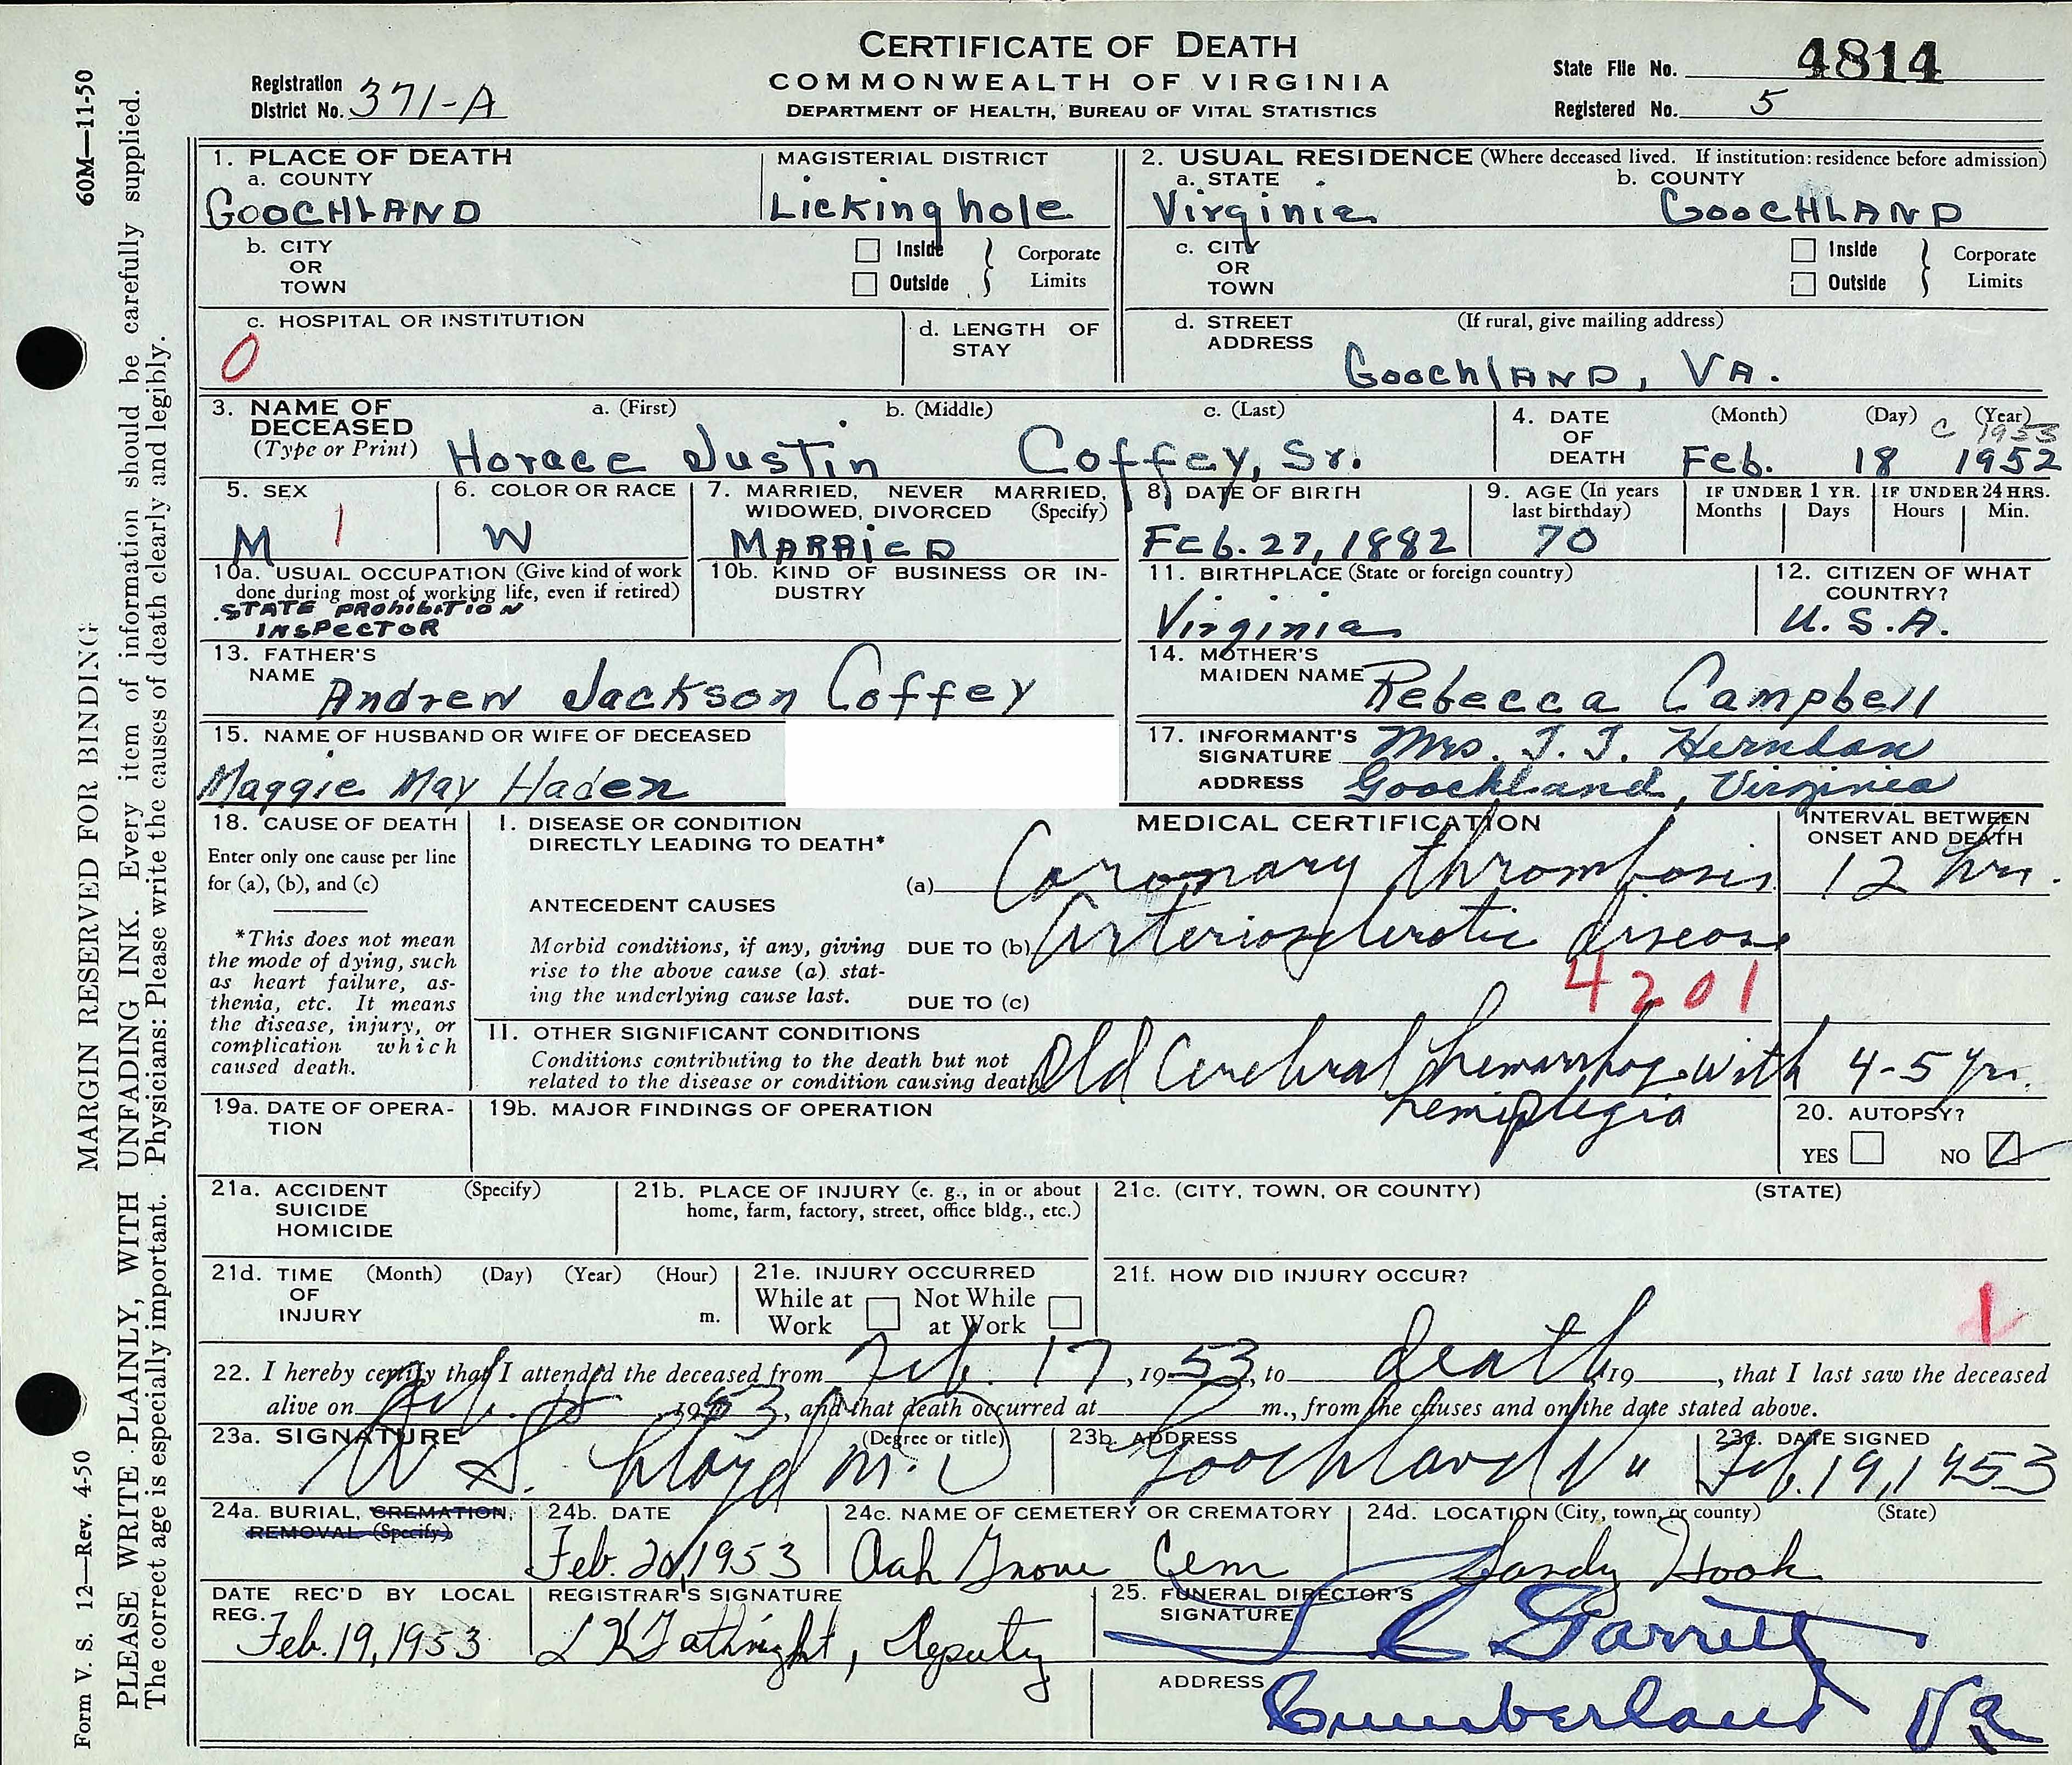 CERTIFICATE OF DEATH
COMMONWEALTH OF VIRGINIA
DEPARTMENT OF HEALTH, BUREAU OF VITAL STATISTICS
Registration District No. 371-A
State File No. 4814
Registered No. 5
1. PLACE OF DEATH
a. COUNTY
GOOCHLAND
MAGISTERIAL DISTRICT
Lickinghole
2. USUAL RESIDENCE (Where deceased lived. If institution: residence before admission)
a. STATE
Virginia
b. COUNTY
GOOCHLAND
b. CITY OR TOWN
Inside
Outside
Corporate Limits
c. CITY OR TOWN
Inside
Outside
Corporate Limits
c. HOSPITAL OR INSTITUTION
0
d. LENGTH OF STAY
d. STREET ADDRESS
(If rural, give mailing address)
GoochlAND, VA.
3. NAME OF DECEASED
(Type or Print)
a. (First)
b. (Middle)
c. (Last)
Horace Justin Coffey, Sr.
4. DATE OF DEATH
(Month) (Day) (Year)
c 1953
Feb. 18 1952
5. SEX
M 1
6. COLOR OR RACE
W
7. MARRIED, NEVER MARRIED, WIDOWED, DIVORCED (Specify)
MARRIED
8. DATE OF BIRTH
Feb. 27, 1882
9. AGE (In years last birthday)
70
IF UNDER 1 YR.
Months Days
IF UNDER 24 HRS.
Hours Min.
10a. USUAL OCCUPATION (Give kind of work done during most of working life, even if retired)
STATE PROhibiTioN
INSPECTOR
10b. KIND OF BUSINESS OR INDUSTRY
11. BIRTHPLACE (State or foreign country)
Virginia
12. CITIZEN OF WHAT COUNTRY?
U.S.A.
13. FATHER'S NAME
Andrew Jackson Coffey
14. MOTHER'S MAIDEN NAME
Rebecca Campbell
15. NAME OF HUSBAND OR WIFE OF DECEASED
Maggie May Haden
17. INFORMANT'S SIGNATURE
Mrs. T. J. Herndon
ADDRESS
Goochland, Virginia
18. CAUSE OF DEATH
Enter only one cause per line for (a), (b), and (c)
*This does not mean the mode of dying, such as heart failure, asthenia, etc. It means the disease, injury, or complication which caused death.
MEDICAL CERTIFICATION
INTERVAL BETWEEN ONSET AND DEATH
I. DISEASE OR CONDITION DIRECTLY LEADING TO DEATH*
(a) Coronary thrombosis
12 hrs.
ANTECEDENT CAUSES
Morbid conditions, if any, giving rise to the above cause (a) stating the underlying cause last.
DUE TO (b) Arteriosclerotic disease
4201
DUE TO (c)
II. OTHER SIGNIFICANT CONDITIONS
Conditions contributing to the death but not related to the disease or condition causing death
Old Cerebral hemorrhage with
hemiplegia
4-5 yrs.
19a. DATE OF OPERATION
19b. MAJOR FINDINGS OF OPERATION
20. AUTOPSY?
YES NO
21a. ACCIDENT SUICIDE HOMICIDE (Specify)
21b. PLACE OF INJURY (e. g., in or about home, farm, factory, street, office bldg., etc.)
21c. (CITY, TOWN, OR COUNTY) (STATE)
21d. TIME OF INJURY (Month) (Day) (Year) (Hour) m.
21e. INJURY OCCURRED
While at Work
Not While at Work
21f. HOW DID INJURY OCCUR?
1
22. I hereby certify that I attended the deceased from Feb. 17, 1953, to death, 19 , that I last saw the deceased
alive on Feb. 18, 1953, and that death occurred at m., from the causes and on the date stated above.
23a. SIGNATURE (Degree or title)
W S. Lloyd M.D
23b. ADDRESS
Goochland Va
23c. DATE SIGNED
Feb. 19, 1953
24a. BURIAL, CREMATION, REMOVAL (Specify)
24b. DATE
Feb. 20, 1953
24c. NAME OF CEMETERY OR CREMATORY
Oak Grove Cem
24d. LOCATION (City, town, or county) (State)
Sandy Hook
DATE REC'D BY LOCAL REG.
Feb. 19, 1953
REGISTRAR'S SIGNATURE
Deputy
25. FUNERAL DIRECTOR'S SIGNATURE
Garrett
ADDRESS
Cumberland Va
60M—11-50
MARGIN RESERVED FOR BINDING
Form V. S. 12—Rev. 4-50
PLEASE WRITE PLAINLY, WITH UNFADING INK. Every item of information should be carefully supplied.
The correct age is especially important. Physicians: Please write the causes of death clearly and legibly.